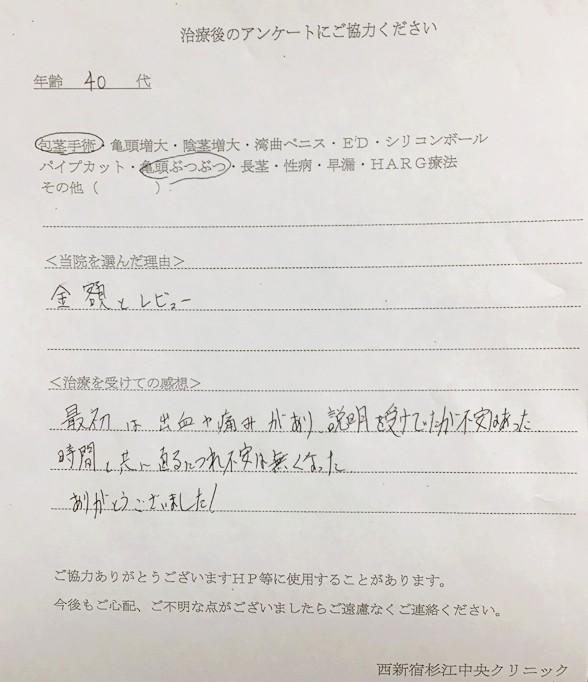 治療後のアンケートにご協力ください
年齢 40 代
包茎手術・亀頭増大・陰茎増大・湾曲ペニス・ED・シリコンボール
パイプカット・亀頭ぶつぶつ・長茎・性病・早漏・HARG療法
その他（ ）
＜当院を選んだ理由＞
金額とレビュー
＜治療を受けての感想＞
最初は出血や痛みがあり、説明を受けていたが不安はあった
時間と共に直るにつれ不安は無くなった
ありがとうございました!
ご協力ありがとうございますHP等に使用することがあります。
今後もご心配、ご不明な点がございましたらご遠慮なくご連絡ください。
西新宿杉江中央クリニック